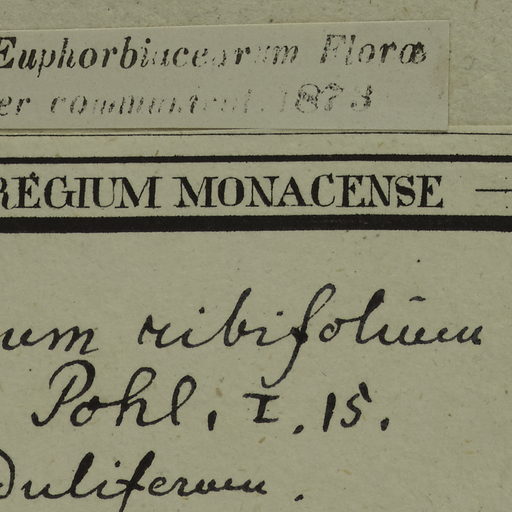 Euphorbiacearum Floræ
er communicat. 1873
REGIUM MONACENSE —
um ribifolium
Pohl. I. 15.
Duliferum.